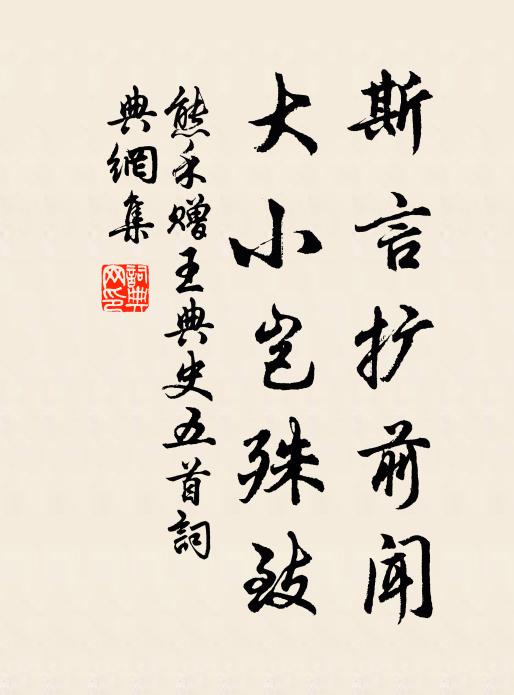 斯言扩前闻
大小岂殊致
熊禾赠王典史五首词
典網集
詞典网印